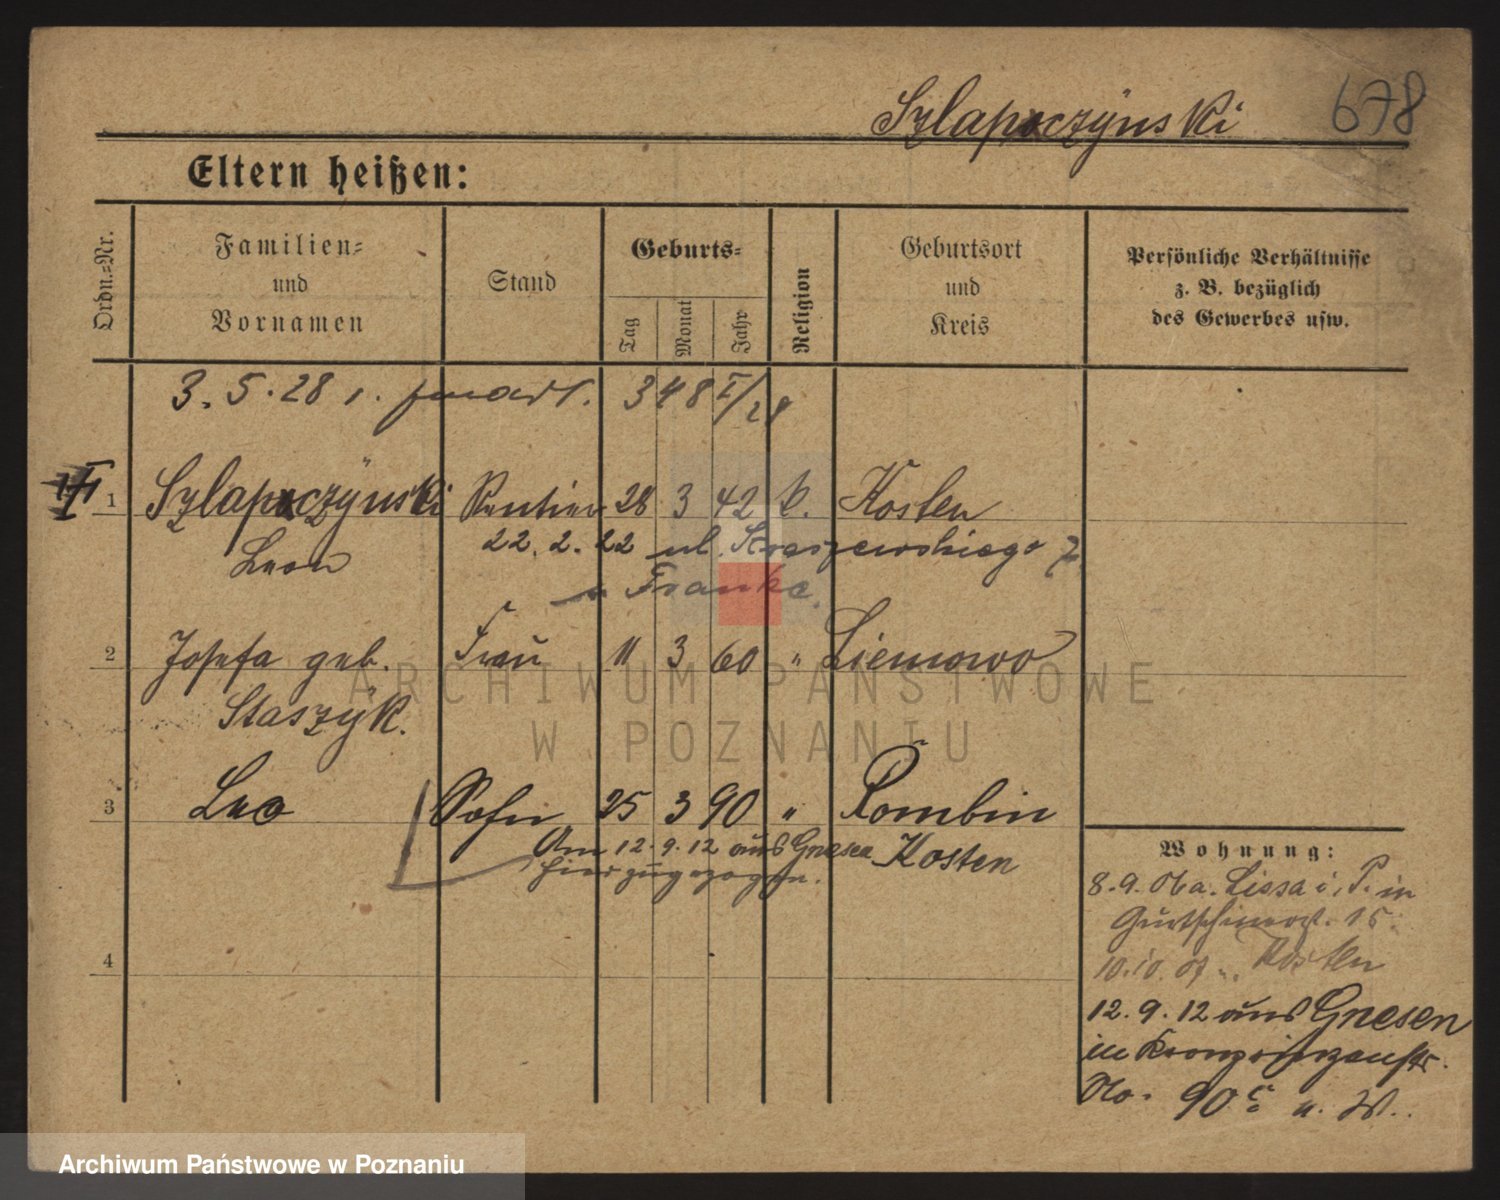 Szlapoczÿnski 678
Eltern heißen:
Ordn.=Nr.
Familien=
und
Vornamen
Stand
Geburts=
Tag
Monat
Jahr
Religion
Geburtsort
und
Kreis
Persönliche Verhältnisse
z. B. bezüglich
des Gewerbes usw.
3. 5. 28 348 I/28
1 Szlapoczÿnski Rentier 28 3 42 k. Kosten
Leon
22. 2. 22 ul. Kraszewskiego 7
u Franke.
2 Josefa geb. Frau 11 3 60 " Siemowo
Staszÿk.
3 Leo Sohn 25 3 90 " Rombin
Kosten
Am 12. 9. 12 aus Gnesen
hier zugezogen.
4
Wohnung:
8. 9. 06 a. Lissa i. P. in
15.
10. 10. 07 " Kosten
12. 9. 12 aus Gnesen
in Kronprinzenstr.
No. 90 c u. W.
ARCHIWUM PAŃSTWOWE
W POZNANIU
Archiwum Państwowe w Poznaniu